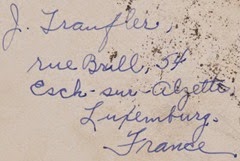 J. Traufler,
rue Brill, 54
Esch-sur-Alzette
Luxemburg.
France